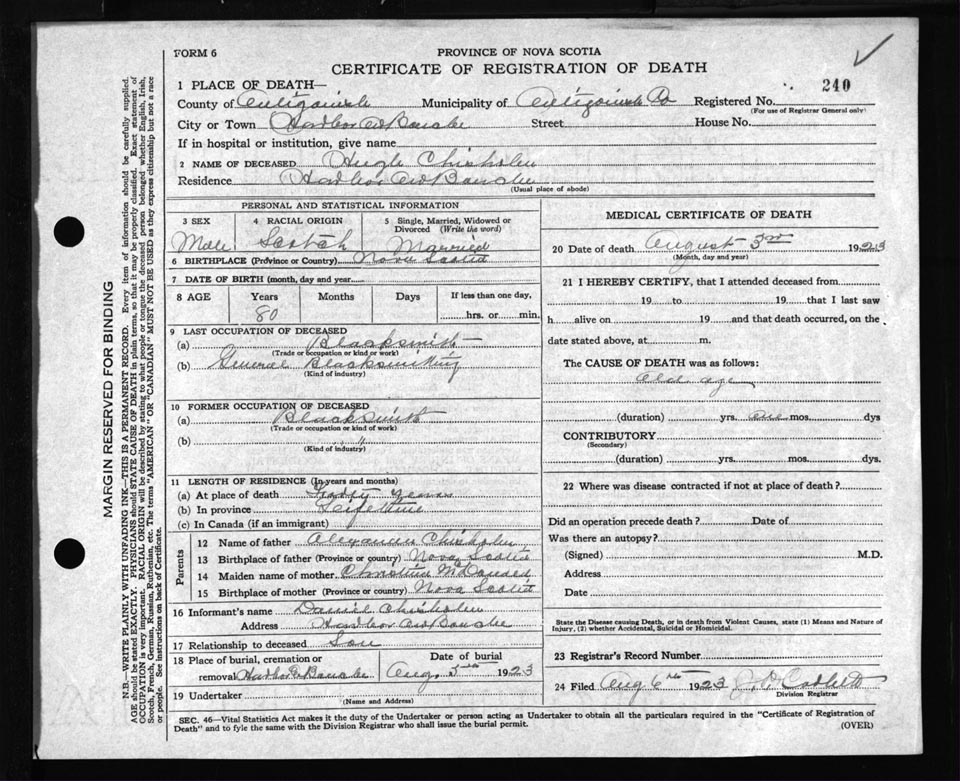 FORM 6
PROVINCE OF NOVA SCOTIA
CERTIFICATE OF REGISTRATION OF DEATH
1 PLACE OF DEATH—
240
County of Antigonish Municipality of Antigonish Co Registered No.
(For use of Registrar General only)
City or Town Harbor Au Bouche Street House No.
If in hospital or institution, give name
2 NAME OF DECEASED Hugh Chisholm
Residence Harbor Au Bouche
(Usual place of abode)
PERSONAL AND STATISTICAL INFORMATION
3 SEX 4 RACIAL ORIGIN 5 Single, Married, Widowed or Divorced (Write the word)
Male Scotch Married
6 BIRTHPLACE (Province or Country) Nova Scotia
7 DATE OF BIRTH (month, day and year)
8 AGE Years Months Days If less than one day,
80 hrs. or min.
9 LAST OCCUPATION OF DECEASED
(a) Blacksmith
(Trade or occupation or kind or work)
(b) General Blacksmithing
(Kind of industry)
10 FORMER OCCUPATION OF DECEASED
(a) Blacksmith
(Trade or occupation or kind of work)
(b) " "
(Kind of industry)
11 LENGTH OF RESIDENCE (In years and months)
(a) At place of death Forty years
(b) In province Life time
(c) In Canada (if an immigrant)
Parents
12 Name of father Chisholm
13 Birthplace of father (Province or country) Nova Scotia
14 Maiden name of mother Christina McDonald
15 Birthplace of mother (Province or country) Nova Scotia
16 Informant's name Daniel Chisholm
Address Harbor Au Bouche
17 Relationship to deceased Son
18 Place of burial, cremation or removal Harbor Au Bouche
Date of burial
Aug. 5th 1923
19 Undertaker
(Name and Address)
MEDICAL CERTIFICATE OF DEATH
20 Date of death August 3rd 1923
(Month, day and year)
21 I HEREBY CERTIFY, that I attended deceased from
19 to 19 that I last saw
h alive on 19 and that death occurred, on the
date stated above, at m.
The CAUSE OF DEATH was as follows:
Old age
(duration) yrs. one mos. dys
CONTRIBUTORY
(Secondary)
(duration) yrs. mos. dys.
22 Where was disease contracted if not at place of death?
Did an operation precede death? Date of
Was there an autopsy?
(Signed) M.D.
Address
Date
State the Disease causing Death, or in death from Violent Causes, state (1) Means and Nature of
Injury, (2) whether Accidental, Suicidal or Homicidal.
23 Registrar's Record Number
24 Filed Aug 6th 1923
Division Registrar
SEC. 46—Vital Statistics Act makes it the duty of the Undertaker or person acting as Undertaker to obtain all the particulars required in the "Certificate of Registration of
Death" and to fyle the same with the Division Registrar who shall issue the burial permit.
(OVER)
MARGIN RESERVED FOR BINDING
N.B.—WRITE PLAINLY WITH UNFADING INK—THIS IS A PERMANENT RECORD. Every item of information should be carefully supplied.
AGE should be stated EXACTLY. PHYSICIANS should STATE CAUSE OF DEATH in plain terms, so that it may be properly classified. Exact statement of
OCCUPATION is very important. RACIAL ORIGIN will be described by stating to what people or tongue the deceased person belonged whether English, Irish,
Scotch, French, German, Russian, Ruthenian, etc. The terms "AMERICAN" OR "CANADIAN" MUST NOT BE USED as they express citizenship but not a race
or people. See instructions on back of Certificate.